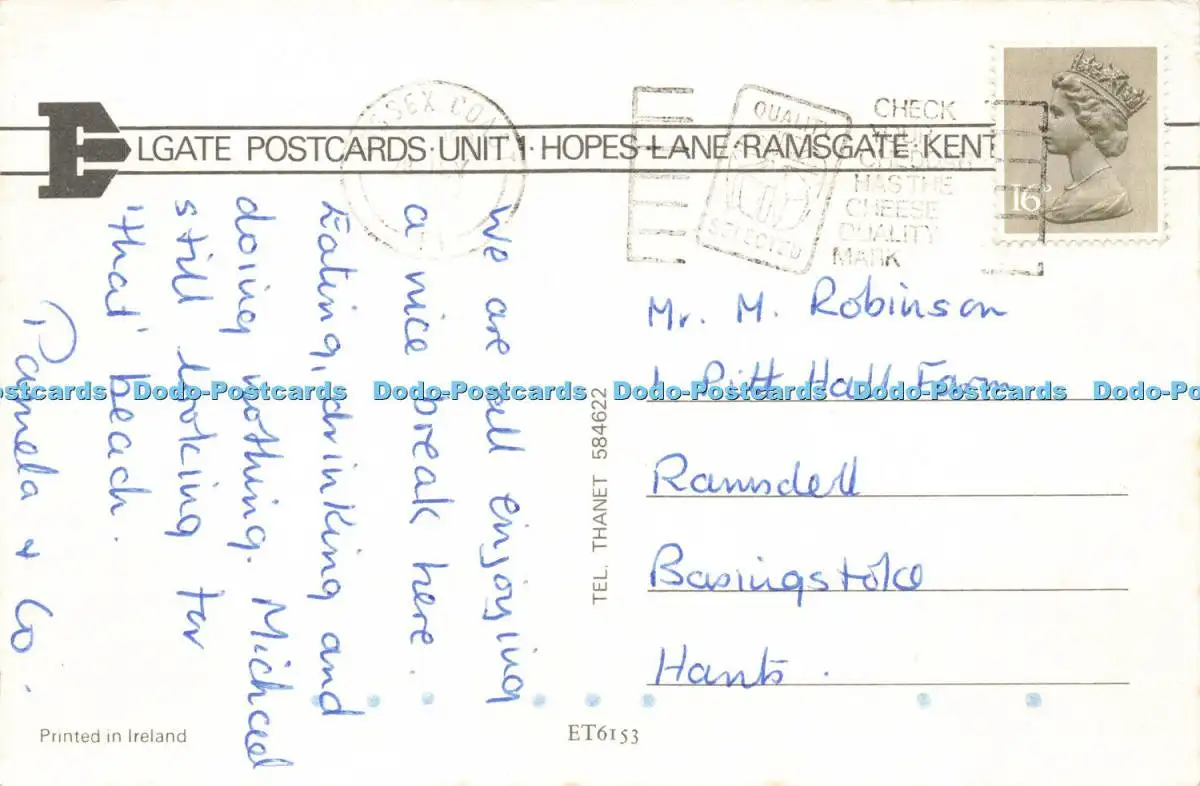 ELGATE POSTCARDS·UNIT 1·HOPES LANE·RAMSGATE·KENT
ESSEX
QUALITY
SELECTED
CHECK
YOUR
CHEDDAR
HAS THE
CHEESE
QUALITY
MARK
16P
We are all enjoying
a nice break here.
Eating, drinking and
doing nothing. Michael
still looking for
'that' beach.
Pamela & Co.
TEL. THANET 584622
Mr. M. Robinson
1 Pitt Hall Farm
Ramsdell
Basingstoke
Hants.
Dodo-Postcards Dodo-Postcards Dodo-Postcards Dodo-Postcards Dodo-Postcards
Printed in Ireland
ET6153